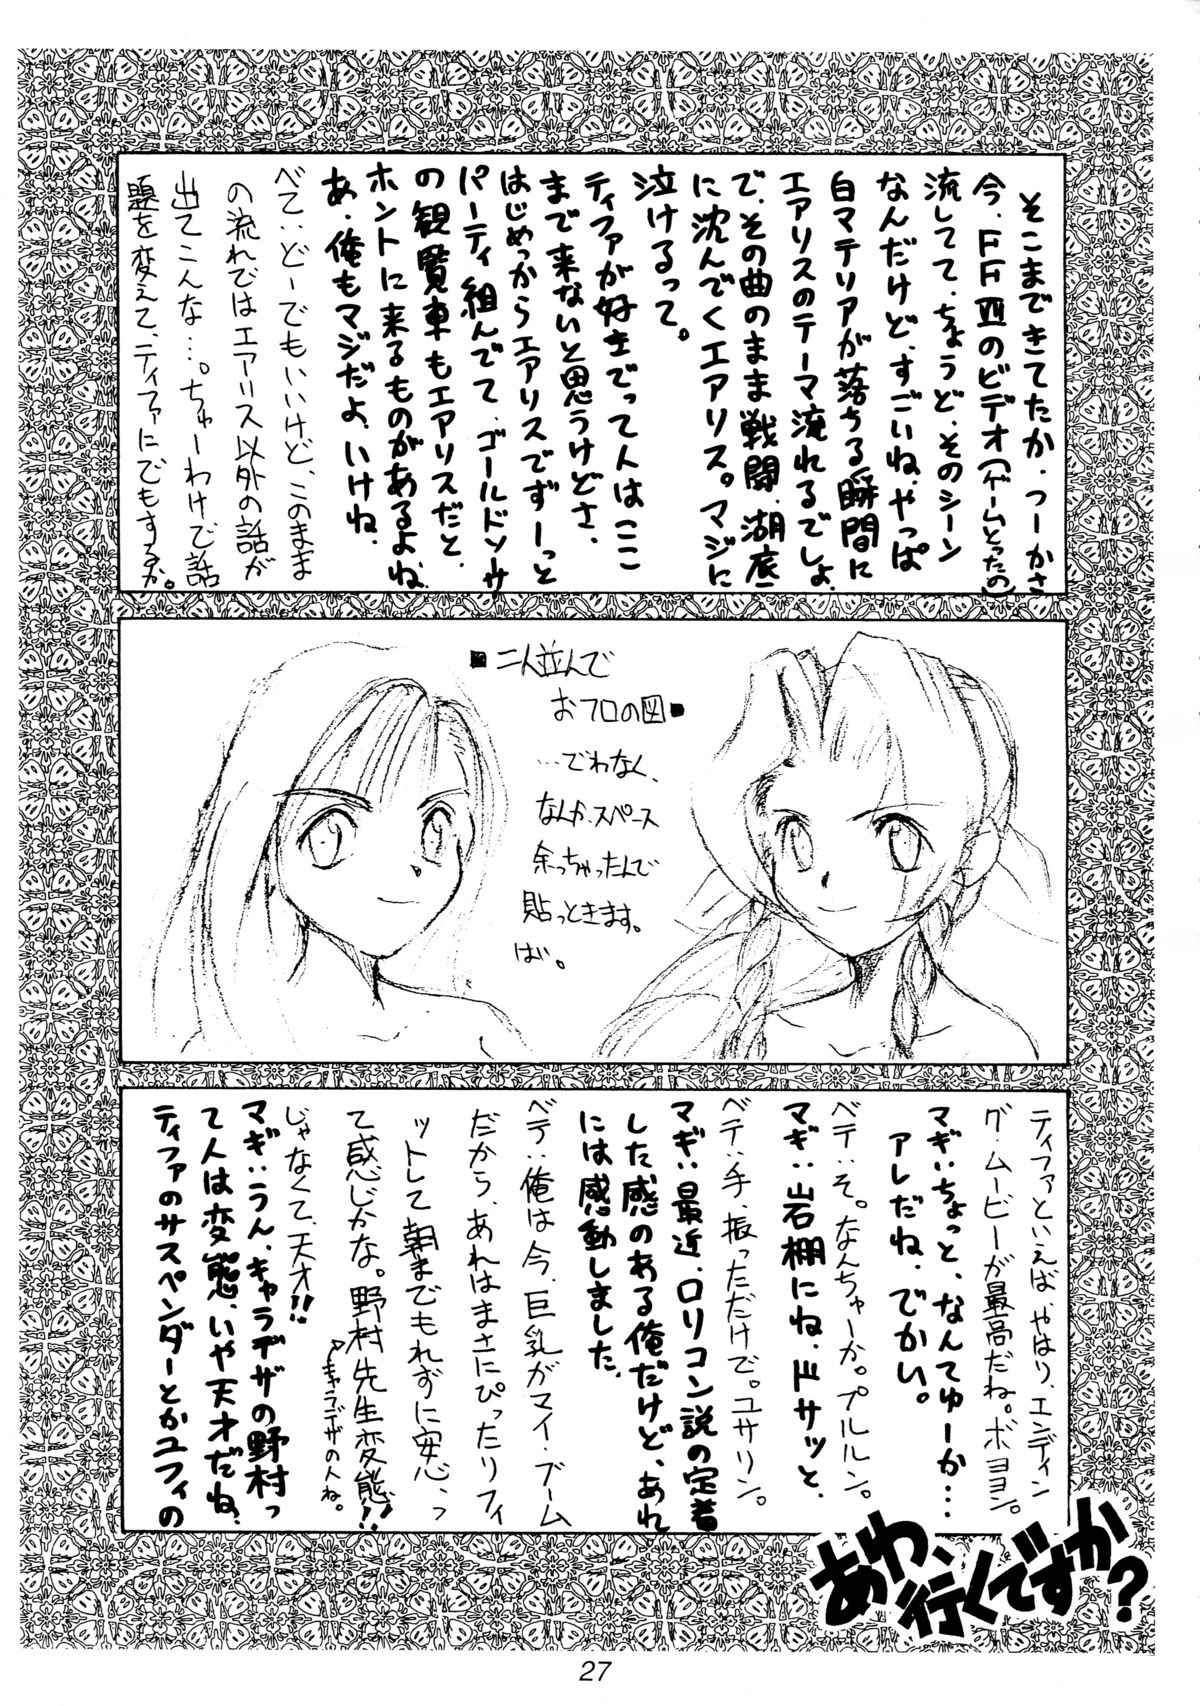 そこまできてたか。つーかさ
今、FFⅦのビデオ(ゲームとったの)
流してて、ちょうど、そのシーン
なんだけど、すごいね、やっぱ
白マテリアが落ちる瞬間に
エアリスのテーマ流れるでしょ、
で、その曲のまま戦闘、湖底
に沈んでくエアリス。マジに
泣けるって。
ティファが好きでって人はここ
まで来ないと思うけどさ、
はじめっからエアリスでずーっと
パーティ組んでて、ゴールドソーサ
の観覧車もエアリスだと
ホントに来るものがあるよね。
あ、俺もマジだよ、いけね。
ベて:どーでもいいけど、このまま
の流れではエアリス以外の話が
出てこんな…。ちゅーわけで話
題を変えて、ティファにでもするか。
■二人並んで
おフロの図■
…でわなく、
なんか、スペース
余っちゃったんで
貼っときます。
ばい。
ティファといえばやはり、エンディン
グ・ムービーが最高だね。ボヨヨン。
マギ:ちょっと、なんてゅーか…
アレだね、でかい。
ベテ:そ。なんちゃーか。プルルン。
マギ:岩棚にね、ドサッと、
ベテ:手、振っただけで。ユサリン。
マギ:最近、ロリコン説の定着
した感のある俺だけど、あれ
には感動しました。
ベテ:俺は今、巨乳がマイ・ブーム
だから、あれはまさにぴったりフィ
ットして朝までもれずに安心、っ
て感じかな。野村先生変態!!
キャラデザの人ね。
じゃなくて、天才!!
マギ:うん、キャラデザの野村っ
て人は変態、いや天才だね、
ティファのサスペンダーとかユフィの
あわ、行くですか?
27